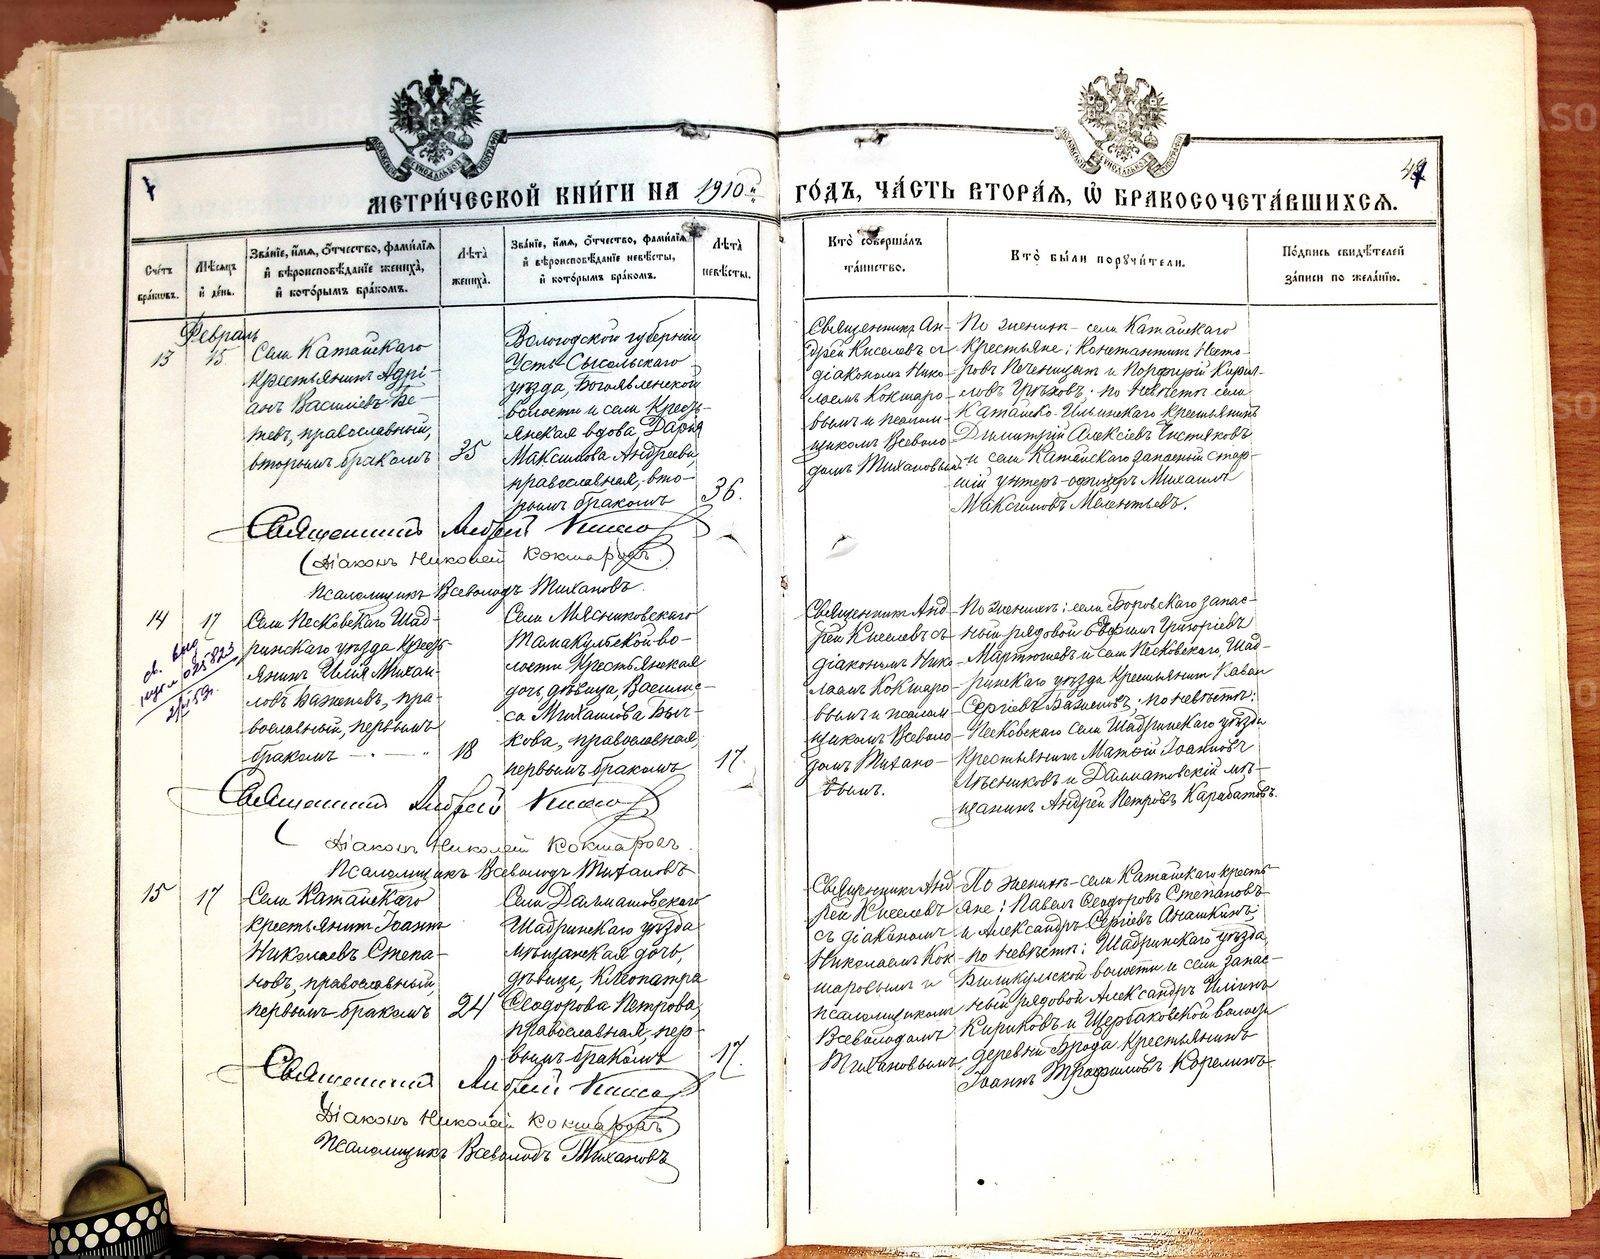 МЕТРИ́ЧЕСКОЙ КНИ́ГИ НА 1910й ГО́ДЪ, ЧА́СТЬ ВТОРА́Я, Ѡ БРАКОСОЧЕТА́ВШИХСЯ.
Сче́тъ бра́ковъ.
Мѣ́сяцъ и де́нь.
Зва́нїе, и́мя, о́тчество, фами́лїя
и вѣроисповѣ́данїе жениха̀,
и кото́рымъ бра́комъ.
Лѣта̀
жениха̀.
Зва́нїе, и́мя, о́тчество, фами́лїя
и вѣроисповѣ́данїе невѣ́сты,
и кото́рымъ бра́комъ.
Лѣта̀
невѣ́сты.
Кто̀ соверша́лъ
та́инство.
Кто̀ бы́ли поручи́тели.
По́дпись свидѣ́телей
за́писи по жела́нїю.
Февраль
13 15
Села Катайскаго
крестьянинъ Адрі-
анъ Василіевъ Бе-
тевъ, православный,
вторымъ бракомъ
35
Вологодской губерніи
Усть-Сысольскаго
уѣзда, Богоявленской
волости и села кресть-
янская вдова, Дарія
Максимова Андреева,
православная, вто-
рымъ бракомъ
36.
Священникъ Ан-
дрей Киселевъ съ
діакономъ Нико-
лаемъ Кокшаро-
вымъ и псалом-
щикомъ Всеволо-
домъ Тихановымъ
По женихѣ - села Катайскаго
крестьяне: Константинъ Несто-
ровъ Печеницынъ и Порфирій Кирил-
ловъ Грѣховъ; по невѣстѣ села
Катайско-Ильинскаго крестьянинъ
Димитрій Алексіевъ Чистяковъ
и села Катайскаго запасный стар-
шій унтеръ-офицеръ Михаилъ
Максимовъ Мелентьевъ.
Священникъ Андрей Кисело
Діаконъ Николай Кокшаровъ.
Псаломщикъ Всеволодъ Тихановъ.
14 17
св. выд
2/VI 59г.
Села Песковскаго Шад-
ринскаго уѣзда кресть-
янинъ Илія Михаи-
ловъ Баженовъ, пра-
вославный, первымъ
бракомъ
18
Села Мясниковскаго
Танакульской во-
лости крестьянская
дочь, дѣвица, Василис-
са Михаилова Быч-
кова, православная,
первымъ бракомъ
17.
Священникъ Анд-
рей Киселевъ съ
діакономъ Нико-
лаемъ Кокшаро-
вымъ и псалом
щикомъ Всеволо-
домъ Тихано-
вымъ.
По женихѣ: села Боровскаго запас-
ный рядовой Евфимъ Григоріевъ
Мартюшевъ и села Песковскаго, Шад-
ринскаго уѣзда крестьянинъ Павелъ
Сергіевъ Баженовъ; по невѣстѣ:
Песковскаго села Шадринскаго уѣзда
крестьянинъ Матѳій Іоанновъ
Лѣсниковъ и Далматовскій мѣ-
щанинъ Андрей Петровъ Карабатовъ.
Священникъ Андрей Кисело
Діаконъ Николай Кокшаровъ.
Псаломщикъ Всеволодъ Тихановъ
15 17
Села Катайскаго
крестьянинъ Іоаннъ
Николаевъ Степа-
новъ, православный,
первымъ бракомъ
24
Села Далматовскаго
Шадринскаго уѣзда
мѣщанская дочь,
дѣвица, Клеопатра
Ѳеодорова Петрова,
православная, пер-
вымъ бракомъ
17.
Священникъ Анд
рей Киселевъ
съ діакономъ
Николаемъ Кок-
шаровымъ и
псаломщикомъ
Всеволодомъ
Тихановымъ
По женихѣ - села Катайскаго кресть-
яне: Павелъ Ѳеодоровъ Степановъ
и Александръ Сергіевъ Анашкинъ;
по невѣстѣ: Шадринскаго уѣзда,
волости и села запас-
ный рядовой Александръ Иліинъ
Кириковъ и Щербаковской волости
деревни Брода крестьянинъ
Іоаннъ Трофимовъ Корелинъ
Священникъ Андрей Кисело
Діаконъ Николай Кокшаровъ
Псаломщикъ Всеволодъ Тихановъ